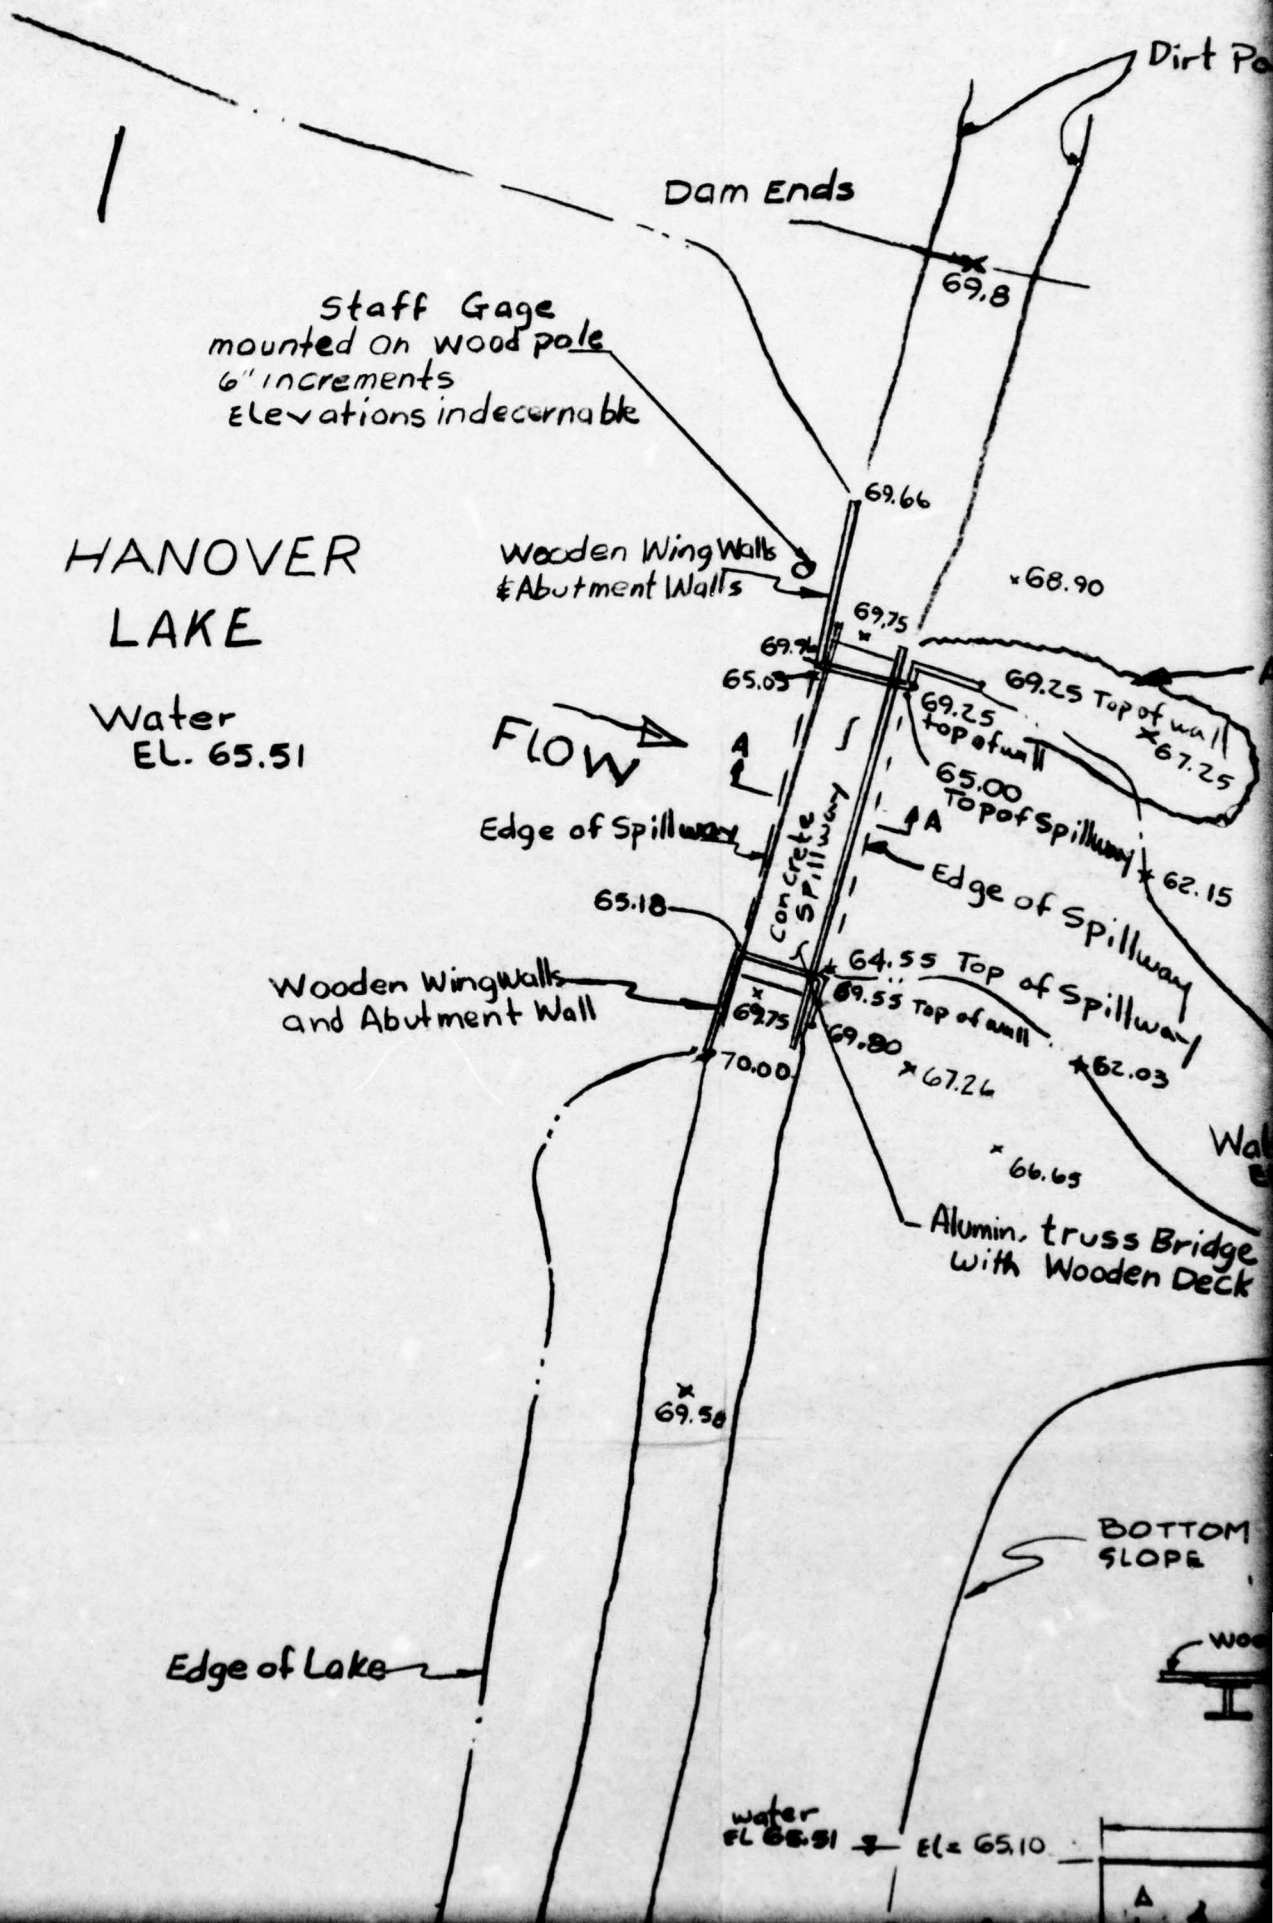 Dirt
Dam Ends
69.8
Staff Gage
mounted on wood pole
6" increments
Elevations indecernable
69.66
HANOVER
LAKE
Water
EL. 65.51
Wooden Wing Walls
& Abutment Walls
x 68.90
69.75
x
69.96
65.05
69.25 Top of wall
x 67.25
69.25
top of wall
65.00
Top of Spillway
FLOW
A
A
Edge of Spillway
Concrete
Spillway
x 62.15
Edge of Spillway
65.18
64.55 Top of Spillway
69.55 Top of wall
Wooden Wingwalls
and Abutment Wall
x
69.75
69.80
70.00
x 67.26
x 62.03
x 66.65
Alumin. truss Bridge
with Wooden Deck
x
69.50
BOTTOM
SLOPE
Edge of Lake
water
EL 65.51
El= 65.10